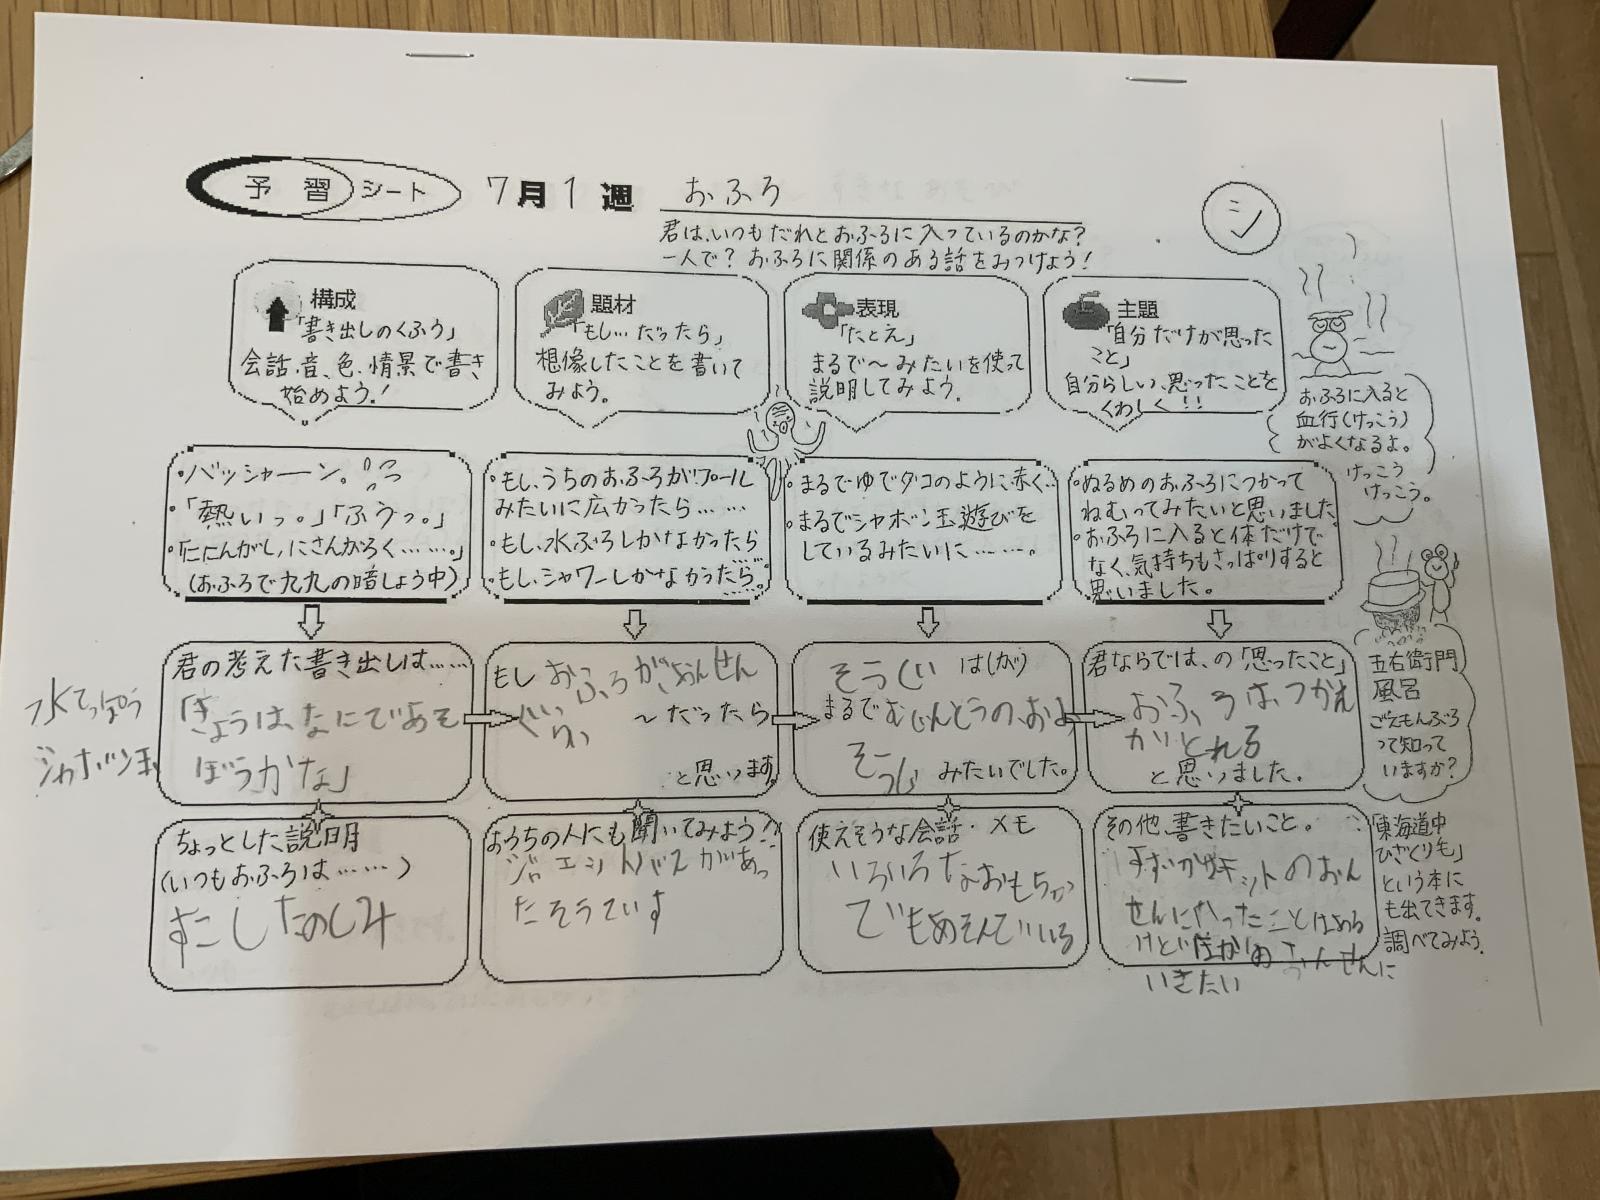 予習シート 7月1週 おふろ
シ
君は、いつもだれとおふろに入っているのかな?
一人で? おふろに関係のある話をみつけよう!
構成
「書き出しのくふう」
会話、音、色、情景で書き
始めよう!
題材
「もし…だったら」
想像したことを書いて
みよう。
表現
「たとえ」
まるで〜みたいを使って
説明してみよう。
主題
「自分だけが思った
こと」
自分らしい、思ったことを
くわしく!!
おふろに入ると
血行(けっこう)
がよくなるよ。
けっこう
けっこう。
・バッシャーン。
・「熱いっ。」「ふうっ。」
・「ににんがし、にさんがろく……。」
(おふろで九九の暗しょう中)
・もし、うちのおふろがプール
みたいに広かったら……
・もし、水ぶろしかなかったら…
・もし、シャワーしかなかったら…
・まるでゆでダコのように赤く…
・まるでシャボン玉遊びを
しているみたいに……。
・ぬるめのおふろにつかって
ねむってみたいと思いました。
・おふろに入ると体だけで
なく、気持ちもさっぱりすると
思いました。
五右衛門
風呂
ごえもんぶろ
って知って
いますか?
「東海道中
ひざくりげ」
という本に
も出てきます。
調べてみよう。
水てっぽう
シャボン玉
君の考えた書き出しは……
「きょうは、なにであそ
ぼうかな」
もしおふろがめんせん
ぐらい
〜だったら
と思います。
そうじ は(が)
まるで
みたいでした。
君ならでは、の「思ったこと」
おふろは、つかれ
がとれる
と思いました。
ちょっとした説明
(いつもおふろは……)
すこしたのしみ
おうちの人にも聞いてみよう!
ジャエントバスがあっ
たそうです
使えそうな会話・メモ
いろいろなおもちゃ
でもあそんでいる
その他、書きたいこと。
すずかサーキットのおん
せんにいったことはある
けどほかのおんせんに
いきたい